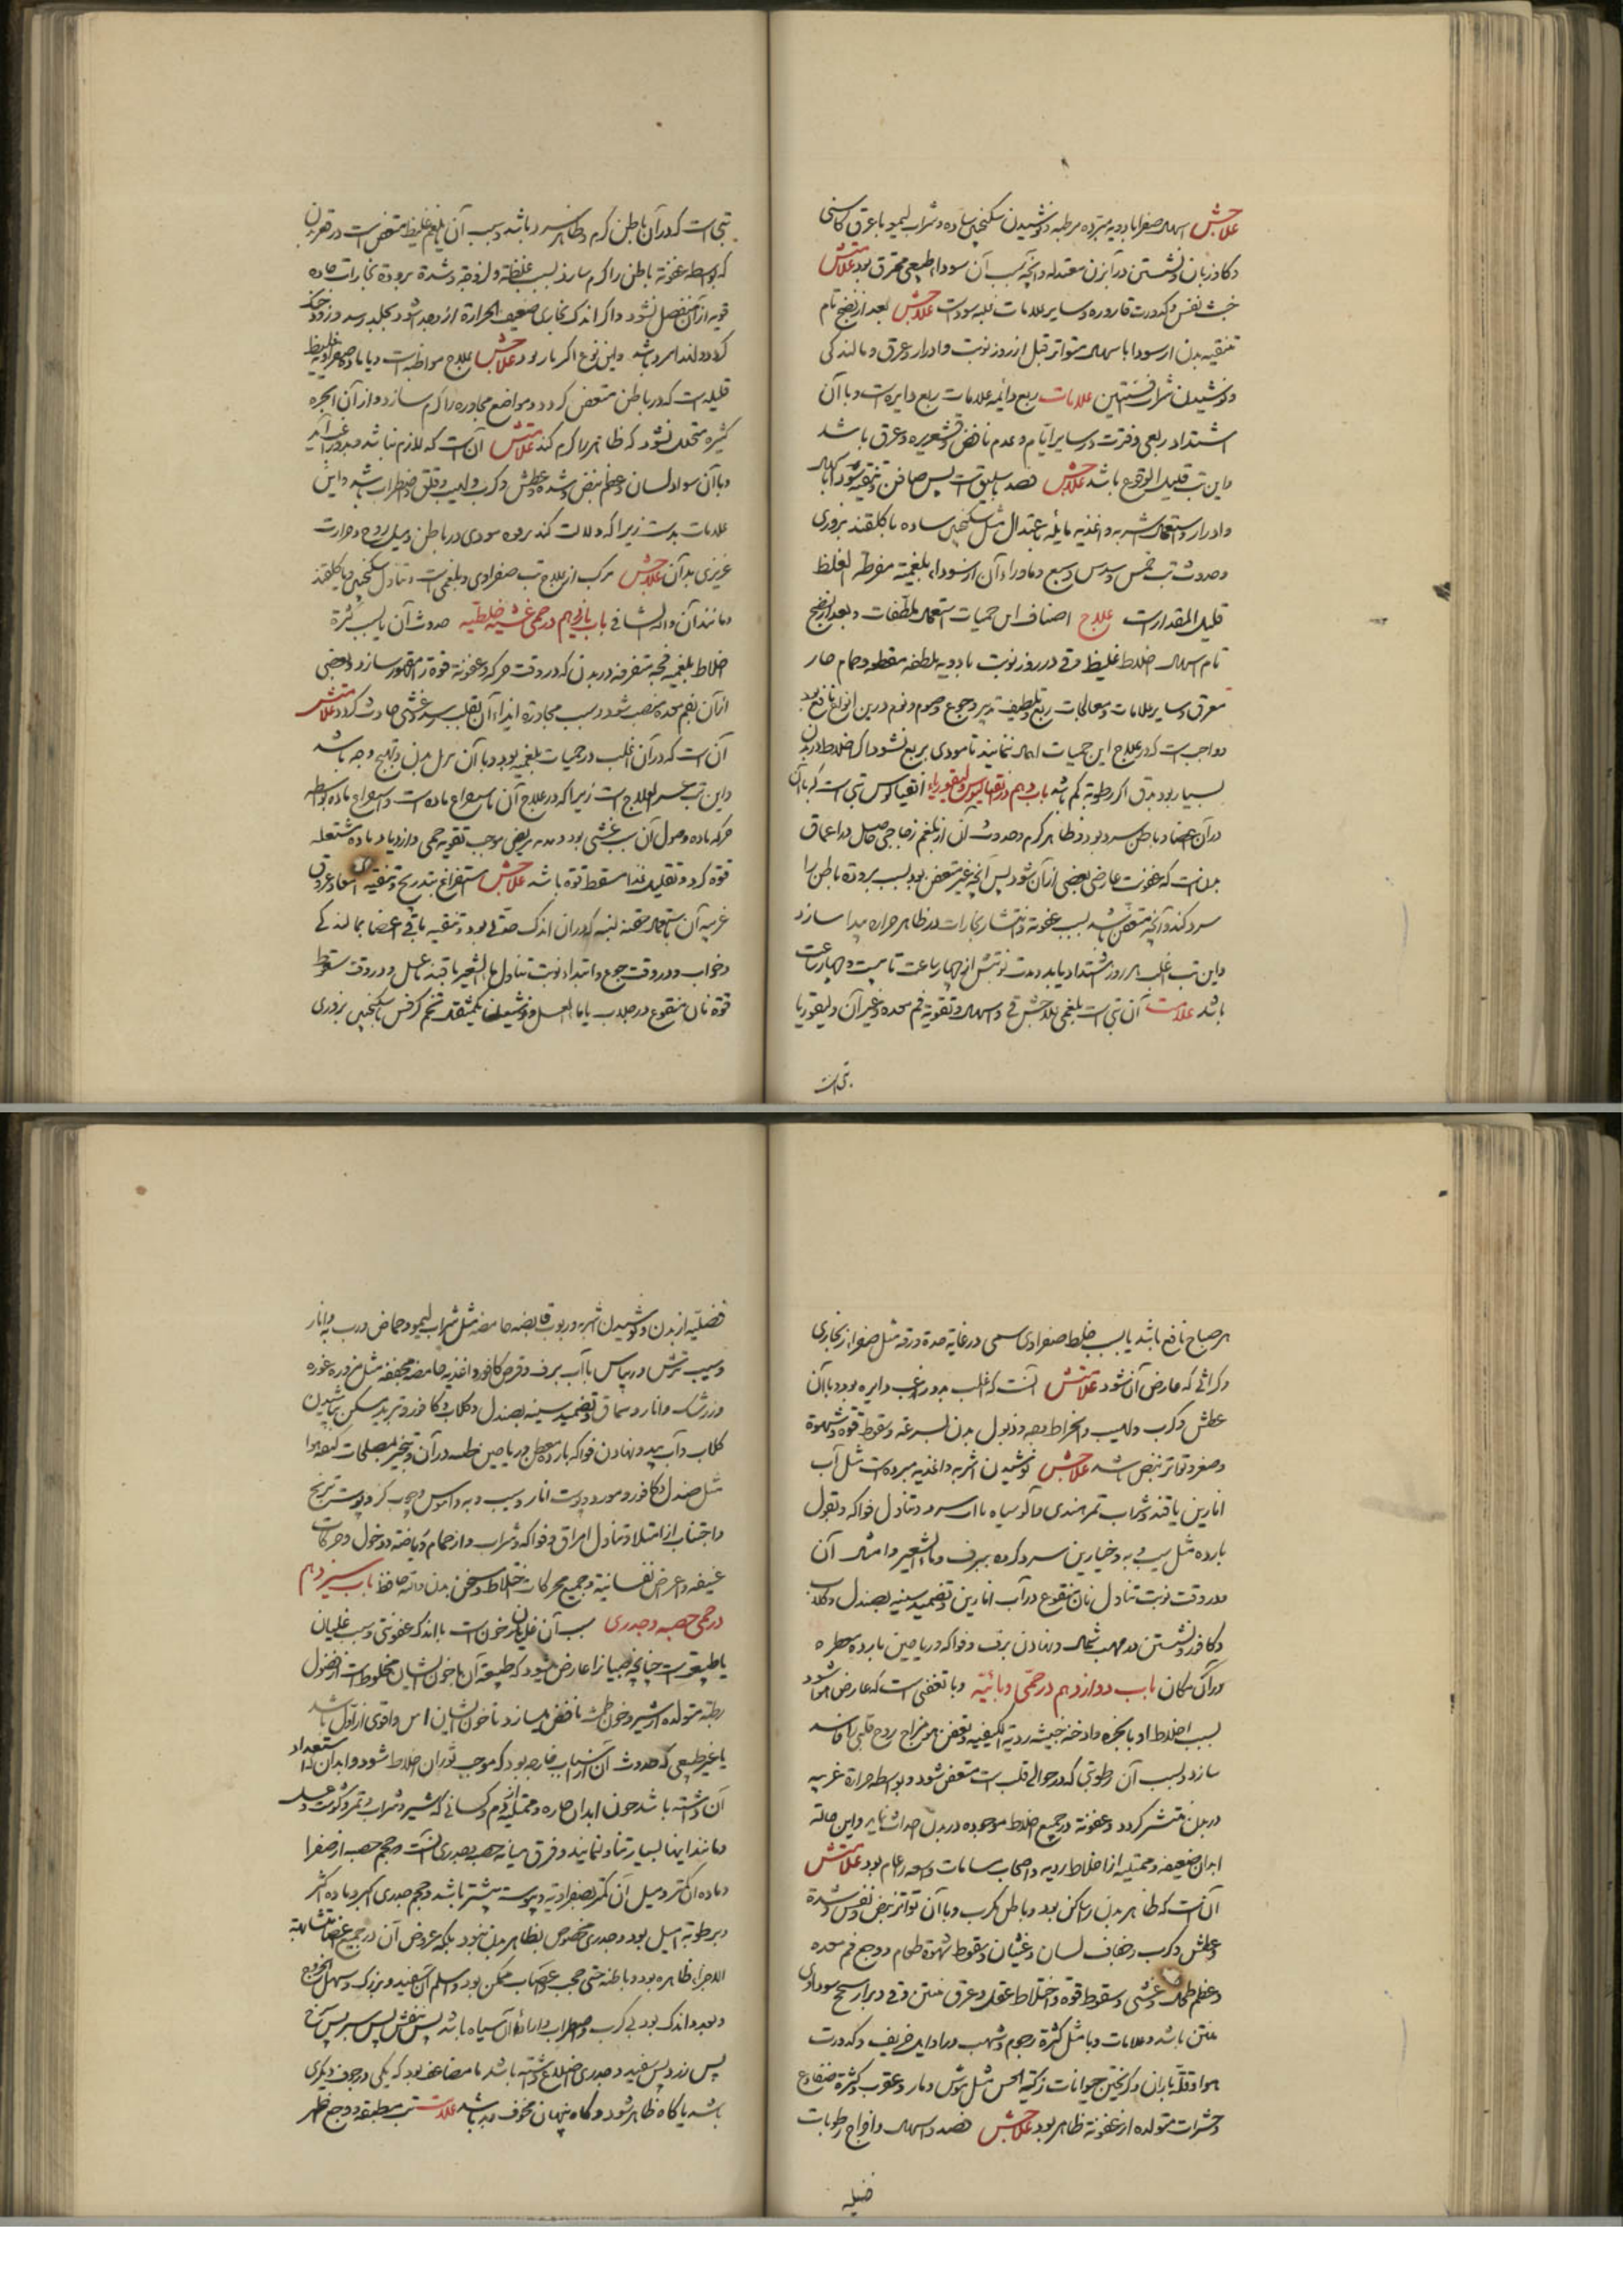 علاجش اسهال صفرا بادویه مبرده مرطبه و نوشیدن سکنجبین ساده و شراب لیمو با عرق کاسنی
و کاوزبان و نشستن در آبزن معتدله و آنچه سبب آن سوداء طبیعی محترق بود علامتش
خبث نفس و کدورت قاروره و سایر علامات غلبه سوداست علاجش بعد از نضج تام
تنقیه بدن از سودا با سهال متواتر قبل از روز نوبت و ادرار و عرق و مالندکی
و نوشیدن شراب افسنتین علامات ربع دائمه علامات ربع دایره است و با آن
اشتداد ربعی و فترت در سایر ایام و عدم نافض و قشعریره و عرق باشد
و این تب قلیل الوقوع باشد علاجش فصد باسلیق است پس صافن و تنقیه سودا باسهال
و ادرار و استعمال اشربه و اغذیه مایله باعتدال مثل سکنجبین ساده با کلقند بزوری
و حدوث تب خمس و سدس و سبع و ماوراء آن از سوداء بلغمیه مفرطه الغلظ
قلیل المقدار است علاج اصناف این حمیات استعمال ملطفات و بعد از نضج
تام اسهال خلط غلیظ و قی در روز نوبت بادویه ملطفه مقطعه و حمام حار
معرق و سایر علامات و معالجات ربع و تلطیف تدبیر و جوع و صوم و نوم درین انواع نافع بود
و واجب است که در علاج این حمیات اهمال ننمایند تا مودی بربع نشود اکر اخلاط در بدن
بسیار بود بدق اکر رطوبة کم باشد باب دهم در انقیالوس و لیفوریاء انقیالوس تبی است که با آن
در آن اعضاء باطن سرد بود و ظاهر کرم و حدوث آن از بلغم زجاجی حاصل در اعماق
بدنست که عفونت عارض بعضی از آن شود پس آنچه غیر متعفن بود بسبب برودة باطن را
سرد کند و آنچه متعفن باشد بسبب عفونة و انتشار بخارات در ظاهر حراره پیدا سازد
و این تب اغلب هر روز اشتداد یابد و مدت نوبتش از چهار ساعت تا بیست و چهار ساعت
باشد علامت آن تبی است بلغمی علاجش قی و اسهال و تقویة فم معده و غیر آن و لیفوریا
تبی است
تبی است که در آن باطن کرم و ظاهر سرد باشد و سبب آن بلغم غلیظ متعفن است در قعر بدن
که بواسطه عفونة باطن را کرم سازد بسبب غلظة و لزوجة و شدة برودة بخارات حاده
قویه از آن منفصل نشود و اکر اندک بخاری ضعیف الحرارة از وجدا شود بجلد رسد و زود خنک
کردد لهذا سرد باشد و این نوع اکر بارد بود علاجش علاج مواظبه است و یا ماده صفراویه غلیظه
قلیله است که در باطن متعفن کردد و مواضع مجاوره را کرم سازد و از آن ابخره
کثیره متحلل نشود که ظاهر را کرم کند علامتش آن است که لازم نباشد و بدور غب آید
و با آن سواد لسان و عظم نبض و شدة عطش و کرب و لهیب و قلق و اضطراب باشد و این
علامات بدست زیرا که دلالت کند بر ورم سودی در باطن و میل روح و حرارت
غریزی بدان علاجش مرکب از علاج تب صفراوی و بلغمی است و تناول سکنجبین و یا کلقند
و مانند آن والله الشافی باب یازدهم در حمی غشیه خلطیه حدوث آن یا بسبب کثرة
اخلاط بلغمیه فجه متفرقه در بدن که در وقت حرکه و عفونة قوة را مقهور سازد و بعضی
از آن بفم معده منصب شود و بسبب مجاورة ایذاء آن بقلب رسد و غشی حادث کردد علامتش
آن است که در آن اغلب در حمیات بلغمیه بود و با آن ترهل بدن و تهبج وجه باشد
و این تب عسر العلاج است زیرا که در علاج آن استفراغ ماده است و استفراغ ماده بواسطه
حرکه ماده و وصول آن سبب غشی بود و تغذیه مریض موجب تقویة حمی و ازدیاد ماده مشتعله
قوة کردد و تقلیل غذا مسقط قوة باشد علاجش استفراغ بتدریج و تنقیه امعاء و عروق
قریبه آن باستعمال حقنه لینه که در آن اندک حدتی بود و تنقیه باقی اعضا بمالندکی
و خواب و در وقت جوع و ابتداء نوبت تناول ماء الشعیر با قند یا عسل و در وقت سقوط
قوة نان منقوع در جلاب یا ماء العسل و نوشیدن یکمثقال تخم کرفس با سکنجبین بزوری
هر صباح نافع باشد یا بسبب خلط صفراوی سمی در غایة حدة و رقة مثل صفراء زنجاری
و کراثی که عارض آن شود علامتش آنست که اغلب بدور غب دایره بود و با آن
عطش و کرب و لهیب و انخراط وجه و ذبول بدن بسرعة و سقوط قوة و شهوة
و صغر و تواتر نبض باشد علاجش نوشیدن اشربه و اغذیه مبرده است مثل آب
انارین یا قند و شراب تمر هندی و آلو سیاه با آب سرد و تناول فواکه و بقول
بارده مثل سیب و به و خیارین سرد کرده ببرف و ماء الشعیر و امثال آن
و در وقت نوبت تناول نان منقوع در آب انارین و تضمید سینه بصندل و کلاب
و کافور و نشستن در مهب شمال و نهادن برف و فواکه و ریاحین بارده معطره
در آن مکان باب دوازدهم در حمی وبائیه وبا تعفنی است که عارض هوا شود
بسبب اختلاط او بابخره و ادخنه خبیثه ردیة الکیفیه و تعفن هوا مزاج روح قلبی را فاسد
سازد و بسبب آن رطوبتی که در حوالی قلب است متعفن شود و بواسطه حرارة غریبه
در بدن منتشر کردد و عفونة در جمیع اخلاط موجوده در بدن احداث نماید و این حالة
ابدان ضعیفه و ممتلیه از اخلاط ردیه و اصحاب مسامات واسعه را عام بود علامتش
آن است که ظاهر بدن ساکن بود و باطن با کرب و با آن تواتر نبض و نفس و شدة
عطش و کرب و جفاف لسان و غثیان و سقوط شهوة طعام و وجع فم معده
و عظم طحال و غشی و سقوط قوة و اختلاط عقل و عرق منتن و قی و براز سمج سوداوی
منتن باشد و علامات وبا مثل کثرة رجوم و شهب در اوایل خریف و کدورت
هوا و قلة باران و کریختن حیوانات زکیة الحس مثل موش و مار و عقرب و کثرة ضفادع
و حشرات متولده از عفونة ظاهر بود علاجش فصد و اسهال و اخراج رطوبات
فضلیه
فضلیه از بدن و نوشیدن اشربه و ربوب قابضه حامضه مثل شراب لیمو و حماض و رب به و انار
و سیب ترش و ریباس با آب برف و قرص کافور و اغذیه حامضه مجففه مثل مزوره غوره
و زرشک و انار و سماق و تضمید سینه بصندل و کلاب و کافور و تبرید مسکن بپاشیدن
کلاب و آب بید و نهادن فواکه بارده معطره و ریاحین طیبه در آن و تبخیر بمصلحات کیفیة هوا
مثل صندل و کافور و مورد و پوست انار و سیب و به و آس و چوب کز و پوست ترنج
و اجتناب از امتلا و تناول امراق و فواکه و شراب و از حمام و ریاضة و دخول و حرکات
عنیفه و اعراض نفسانیة و جمیع محرکات اخلاط و مسخن بدن والله حافظ باب سیزدهم
در حمی حصبه و جدری سبب آن غلیان خون است با اندک عفونتی و سبب غلیان
یا طبیعی است چنانچه صبیان را عارض میشود که طبیعة آن با خون ایشان مخلوط است از فضول
رطبه متولده از شیر و خون طمث نافض میسازد تا خون ایشان امتن و اقوی از اول باشد
یا غیر طبیعی که حدوث آن از اسباب خارجه بود که موجب ثوران اخلاط شود و ابدان که استعداد
آن داشته باشد چون ابدان حاره و ممتلیه از دم و کسانی که شیر و شراب و تمر و کوشت و عسل
و مانند اینها بسیار تناول نمایند و فرق میانه حصبه و جدری آنست که حجم حصبه اصغر
و ماده آن کمتر و میل آن کمتر بصفراویة و یبوست بیشتر باشد و حجم جدری اکبر و ماده اکثر
و برطوبة امیل بود و جدری مخصوص بظاهر بدن نبود بلکه عروض آن در جمیع اعضا متشابهة
الاجزاء ظاهره بود و باطنه حتی حجب و اعصاب ممکن بود و اسلم آن سفید و بزرک و سهل الخروج
و بعدد اندک بود بی کرب و اضطراب و اردا آن سیاه باشد پس بنفش پس سبز پس سرخ
پس زرد پس سفید و جدری اضلاع داشته باشد یا مضاعف بود که یکی در جوف دیکری
باشد یا کاه ظاهر شود و کاه پنهان مخوف و بد باشد علامت تب مطبقه و وجع ظهر